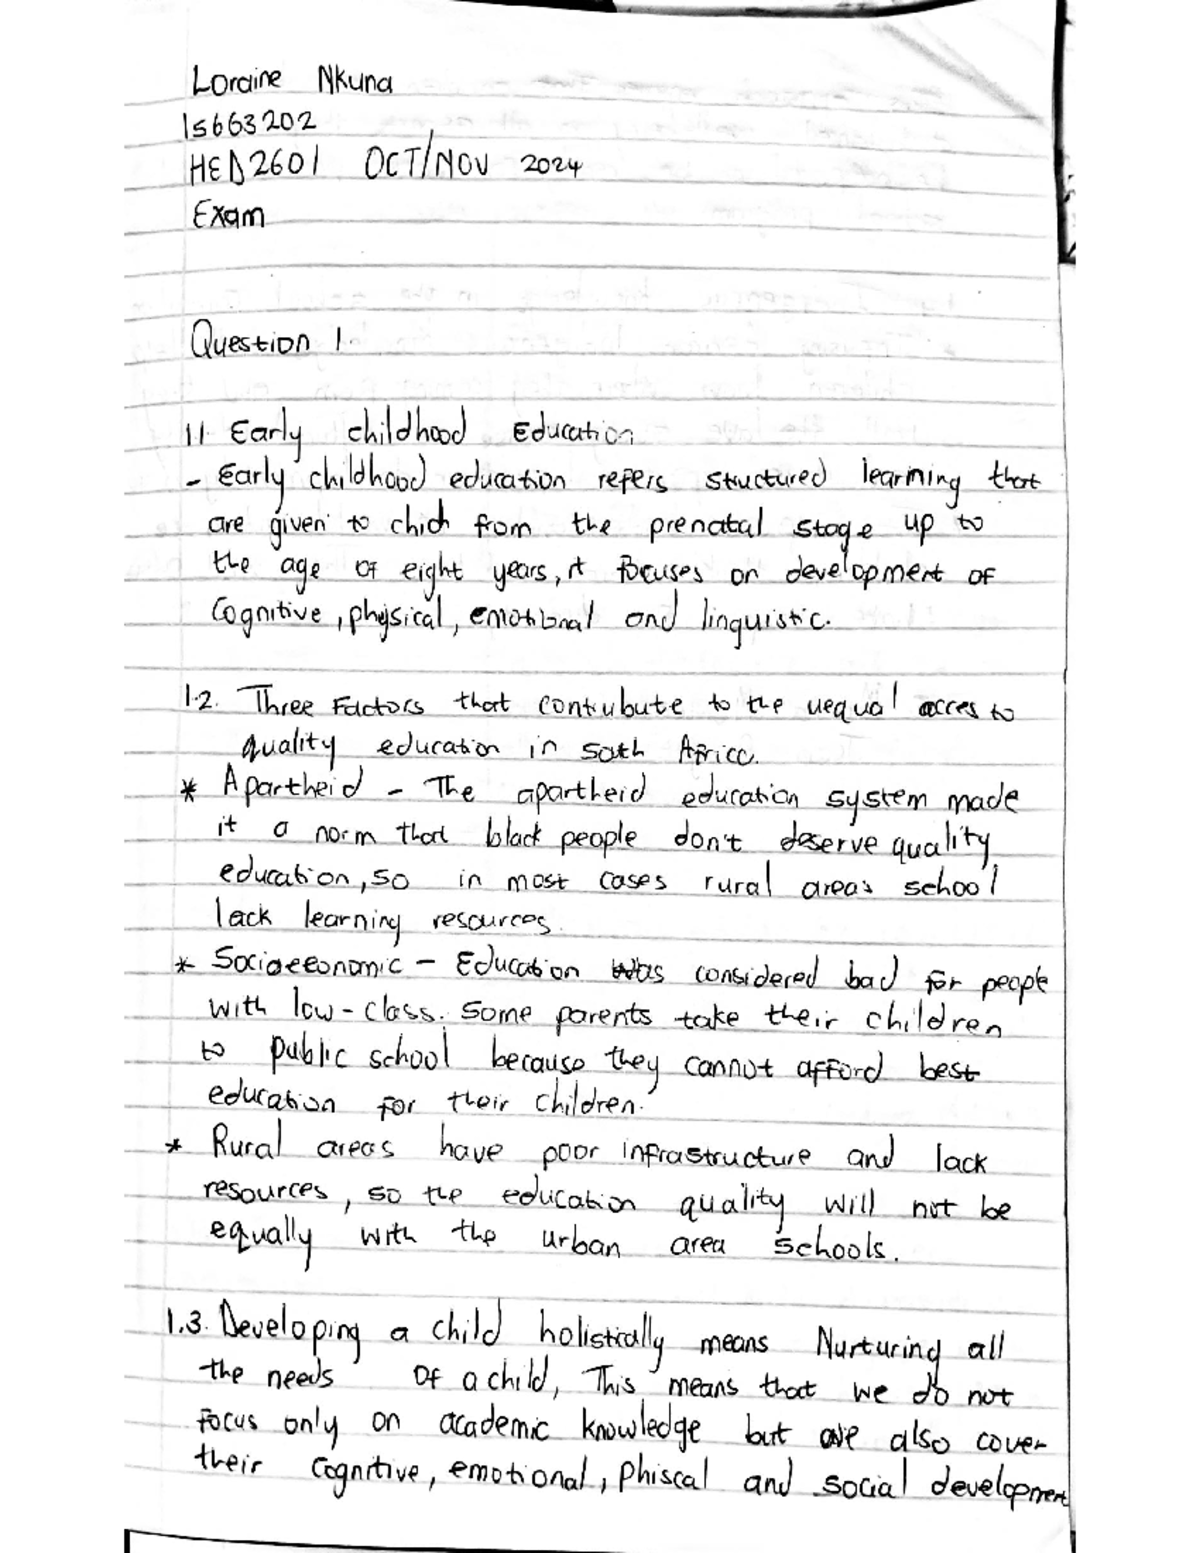 Loraine Nkuna
15663202
HED2601 OCT/NOV 2024
Exam
Question 1.
1.1. Early childhood Education
- Early childhood education refers structured learning that
are given to chich from the prenatal stage up to
the age of eight years, it focuses on development of
Cognitive, physical, emotional and linguistic.
1.2. Three Factors that contubute to the uequal acces to
quality education in South Africa.
* Apartheid - The apartheid education system made
it a norm that black people don't deserve quality
education, so in most cases rural areas school
lack learning resources.
* Socioeconomic - Education was considered bad for people
with low-class. Some parents take their children
to public school because they cannot afford best
education for their children.
* Rural areas have poor infrastructure and lack
resources, so the education quality will not be
equally with the urban area schools.
1.3. Developing a child holistically means Nurturing all
the needs of a child, This means that we do not
focus only on academic knowledge but we also cover
their Cognitive, emotional, phiscal and social development